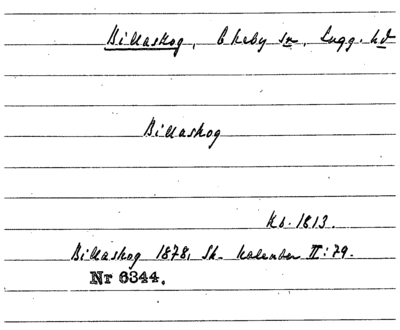 Billaskog, Ekeby sn, Lugg. hd
Billaskog
Kb. 1813.
Billaskog 1878, Sk. kalender II:79.
Nr 6344.